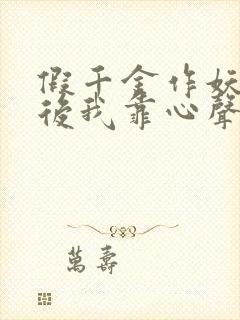 假千金作妖
後我靠心聲
萬壽